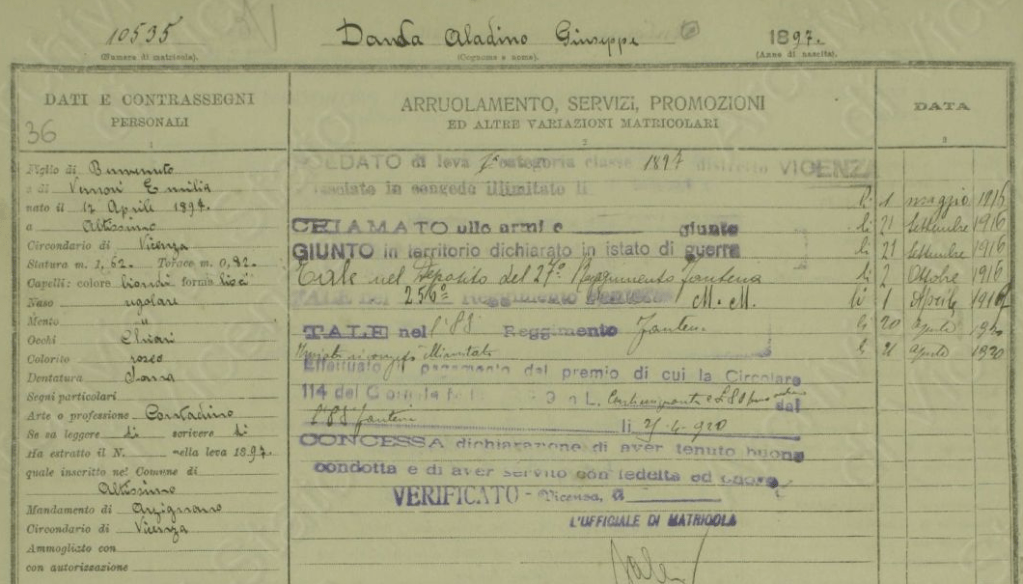 10535 Danda Aladino Giuseppe 1897.
(Numero di matricola). (Cognome e nome). (Anno di nascita).
DATI E CONTRASSEGNI
PERSONALI
36
1
ARRUOLAMENTO, SERVIZI, PROMOZIONI
ED ALTRE VARIAZIONI MATRICOLARI
2
DATA
3
Figlio di Benvenuto
e di Emilia
nato il 12 Aprile 1897.
a Altissimo
Circondario di Vicenza
Statura m. 1, 62. Torace m. 0,82.
Capelli: colore biondi forma lisci
Naso regolare
Mento "
Occhi Chiari
Colorito roseo
Dentatura Sana
Segni particolari
Arte o professione Contadino
Se sa leggere di scrivere di
Ha estratto il N. nella leva 1897.
quale inscritto nel Comune di
Altissimo
Mandamento di Arzignano
Circondario di Vicenza
Ammogliato con
con autorizzazione
SOLDATO di leva 1ª categoria classe 1897 distretto VICENZA
lasciato in congedo illimitato li li 1 maggio 1916
CHIAMATO alle armi e giunto li 21 Settembre 1916
GIUNTO in territorio dichiarato in istato di guerra li 21 Settembre 1916
Tale nel Deposito del 27° Reggimento Fanteria li 2 Ottobre 1916
TALE nel 256° Reggimento M. M. li 1 Aprile
TALE nel l'88 Reggimento Fanteria li 20 agosto 1920
Inviato in congedo illimitato li 21 agosto 1920
Effettuato il pagamento del premio di cui la Circolare
114 del Giornale dal
l'88 fanteria li 920
CONCESSA dichiarazione di aver tenuto buona
condotta e di aver servito con fedeltà ed onore
VERIFICATO - Vicenza, li
L'UFFICIALE DI MATRICOLA